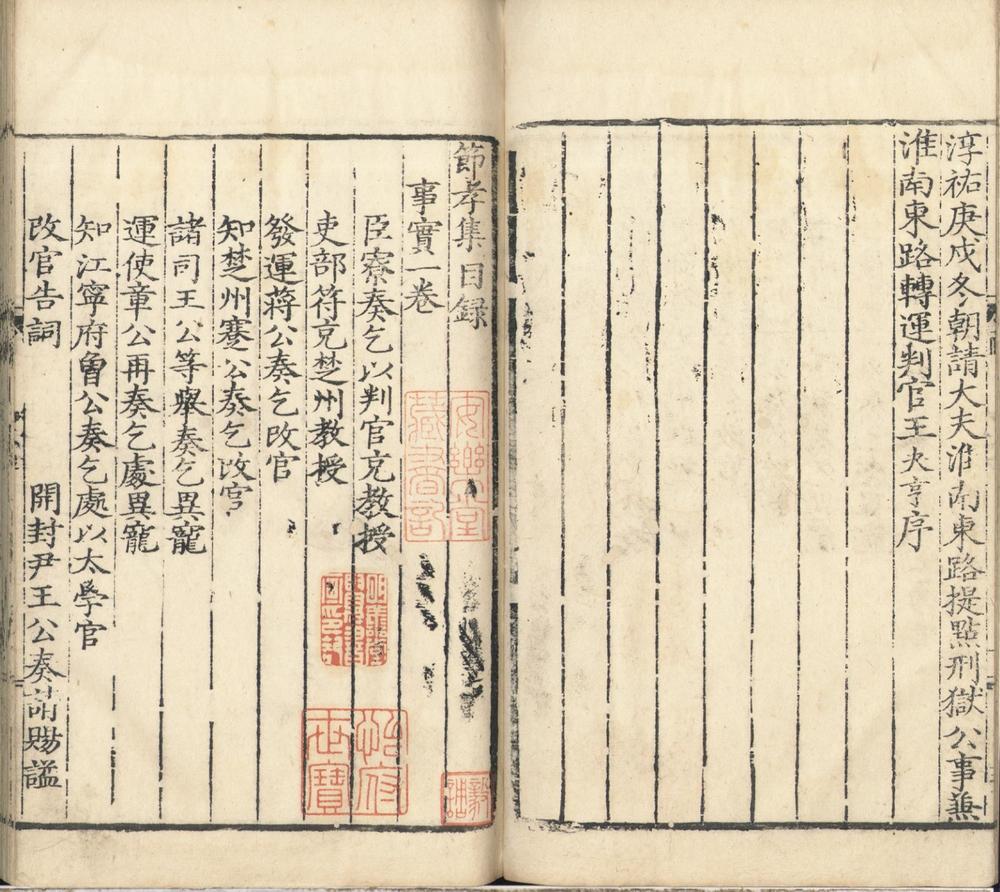 淳祐庚戌冬朝請大夫淮南東路提點刑獄公事兼
淮南東路轉運判官王夬亨序
節孝集目録
事實一卷
臣寮奏乞以判官充教授
吏部符充楚州教授
發運蔣公奏乞改官
知楚州蹇公奏乞改官
諸司王公等舉奏乞異寵
運使章公再奏乞處異寵
知江寧府曾公奏乞處以太學官
改官告詞 開封尹王公奏請賜謚
安樂堂藏書記
明善堂覽書畫印記
怡府世寶